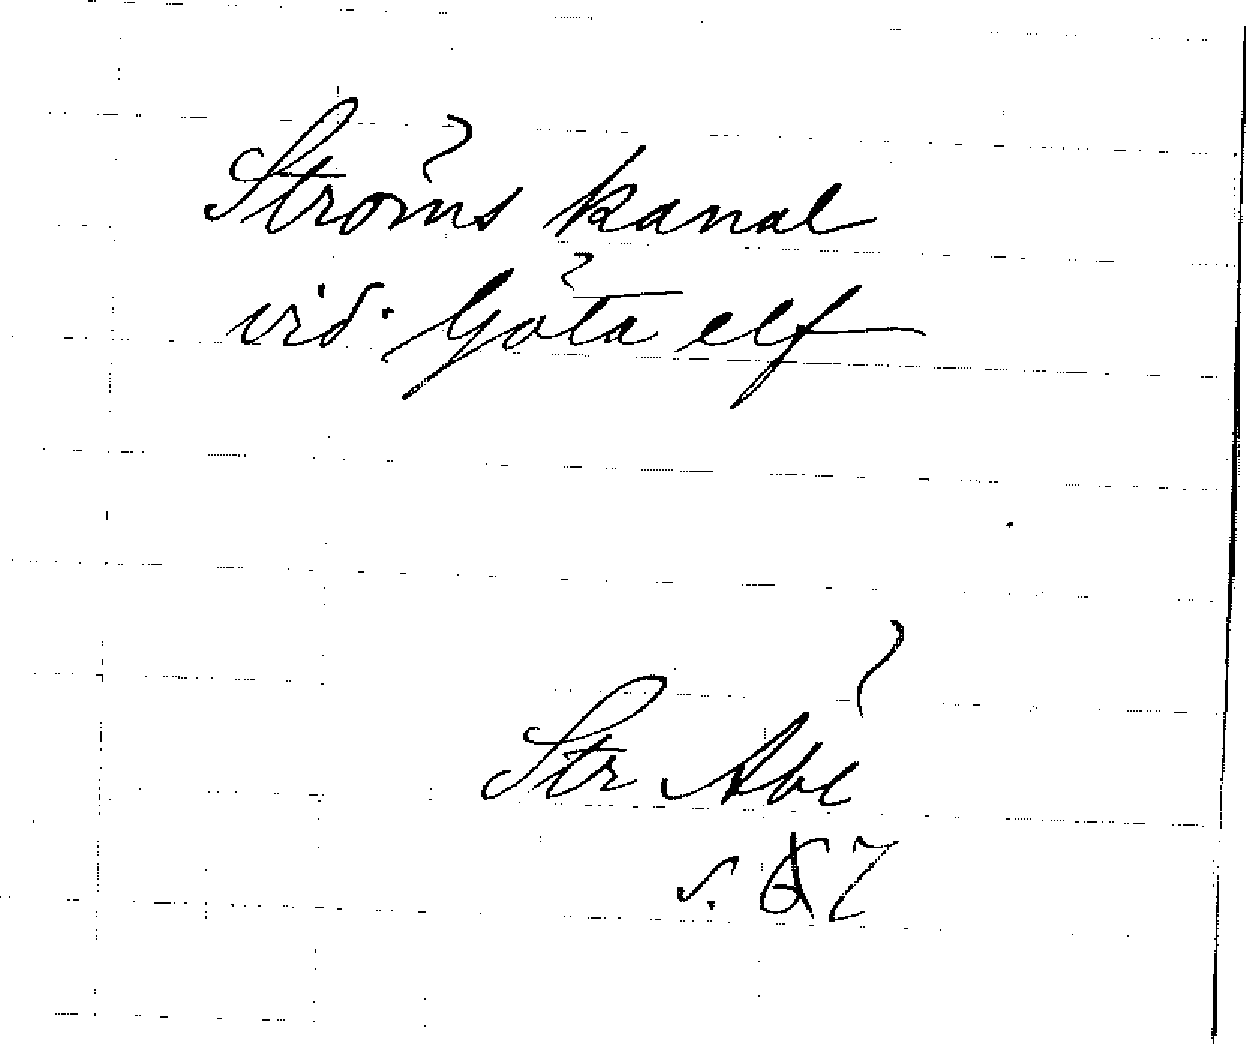 Ströms kanal
vid Göta elf
Str
s. 7